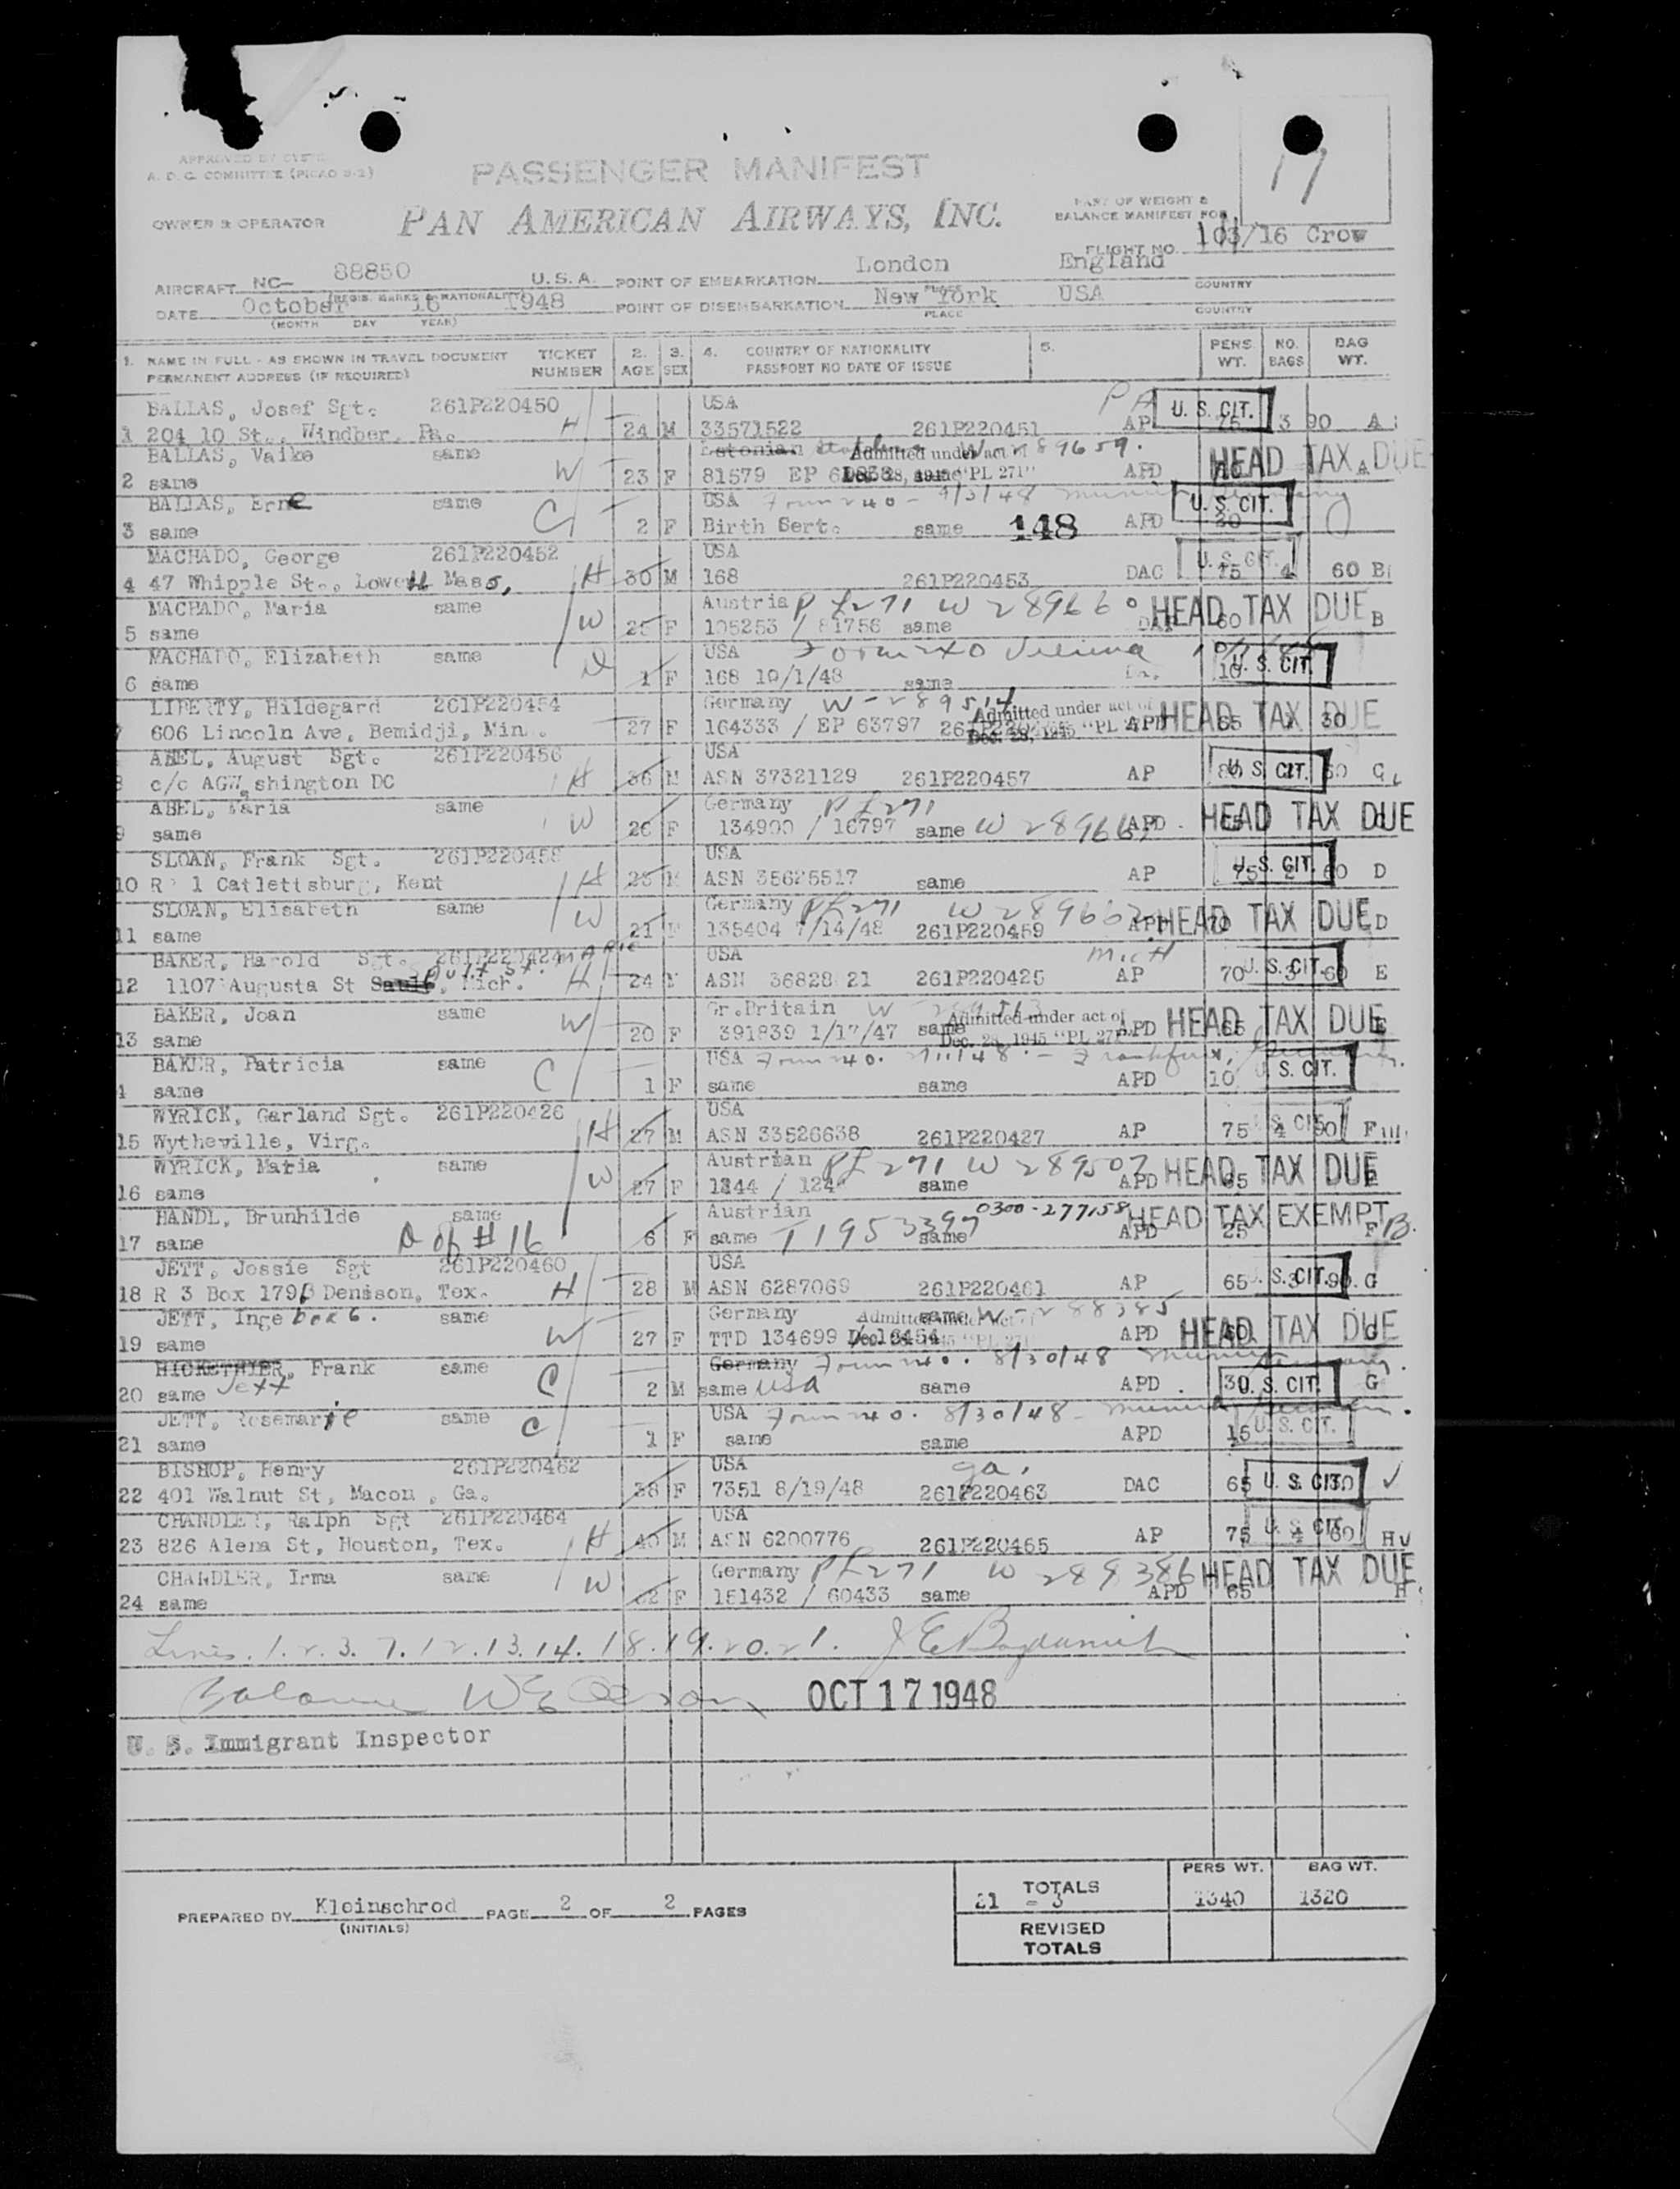 17
APPROVED BY
A. D. C. COMMITTEE (PICAO 9-2)
PASSENGER MANIFEST
OWNER & OPERATOR
PAN AMERICAN AIRWAYS, INC.
PART OF WEIGHT &
BALANCE MANIFEST FOR
FLIGHT NO. 103/16 Crow
AIRCRAFT NC- 88850 U.S.A. POINT OF EMBARKATION London England
(REGIS. MARKS & NATIONALITY) PLACE COUNTRY
DATE October 16 1948 POINT OF DISEMBARKATION New York USA
(MONTH DAY YEAR) PLACE COUNTRY
1. NAME IN FULL - AS SHOWN IN TRAVEL DOCUMENT TICKET 2. 3. 4. COUNTRY OF NATIONALITY 5. PERS NO. BAG
PERMANENT ADDRESS (IF REQUIRED) NUMBER AGE SEX PASSPORT NO DATE OF ISSUE WT. BAGS WT.
BALLAS, Josef Sgt. 261P220450 USA PA U. S. CIT.
1 204 10 St., Windber, Pa. H 24 M 33571522 261P220451 AP 75 3 90 A
BALLAS, Vaike same Estonian Admitted under act of W 289659. HEAD TAX DUE
2 same W 23 F 81579 EP Dec. 28, 1945 "PL 271" APD A
BALLAS, Erne same USA Form 240 - 9/3/48 Munich Germany U. S. CIT.
3 same C 2 F Birth Sert. same 148 APD 30
MACHADO, George 261P220452 USA U. S. CIT.
4 47 Whipple St., Lowell Mass, H 30 M 168 261P220453 DAC 75 4 60 B
MACHADO, Maria same Austria PL 271 W 289660 HEAD TAX DUE
5 same W 25 F 105253 / 81756 same 60 B
MACHADO, Elizabeth same USA Form 240 Vienna
6 same D 1 F 168 10/1/48 same 10 U. S. CIT.
LIBERTY, Hildegard 261P220454 Germany W-289514 Admitted under act of HEAD TAX DUE
606 Lincoln Ave, Bemidji, Min. 27 F 164333 / EP 63797 Dec. 28, 1945 "PL 271" APD 65 30
ABEL, August Sgt. 261P220456 USA
8 c/o AGWashington DC H 36 M ASN 37321129 261P220457 AP U. S. CIT. C
ABEL, Maria same Germany PL 271 HEAD TAX DUE
9 same W 26 F 134900 / 16797 same W 28966 APD
SLOAN, Frank Sgt. 261P220458 USA U. S. CIT.
10 R 1 Catlettsburg, Kent H 25 M ASN 35625517 same AP 75 60 D
SLOAN, Elisabeth same Germany PL 271 W 28966 HEAD TAX DUE
11 same W 21 F 135404 7/14/48 261P220459 APD 70 D
BAKER, Harold Sgt. 261P220424 MARIE USA Mich
12 1107 Augusta St Sault St., Mich. H 24 M ASN 36828 21 261P220425 AP 70 3 60 U. S. CIT. E
BAKER, Joan same Gr.Britain W Admitted under act of HEAD TAX DUE
13 same W 20 F 391839 1/17/47 same Dec. 28, 1945 "PL 271" APD 65 E
BAKER, Patricia same USA Form 240. - Frankfurt, Germany. U. S. CIT.
same C 1 F same same APD 10
WYRICK, Garland Sgt. 261P220426 USA
15 Wytheville, Virg. H 27 M ASN 33526638 261P220427 AP 75 4 90 U. S. CIT. F
WYRICK, Maria same Austrian PL 271 W 289507 HEAD TAX DUE
16 same W 27 F 1244 / 124 same APD 65
HANDL, Brunhilde same Austrian 0300-277158 HEAD TAX EXEMPT
17 same D of #16 6 F same T 1953397 same APD 25 F B.
JETT, Jessie Sgt 261P220460 USA
18 R 3 Box 179B Denison, Tex. H 28 M ASN 6287069 261P220461 AP 65 3 90 U. S. CIT. G
JETT, Inge box 6. same Germany Admitted under act of same W-288385 HEAD TAX DUE
19 same W 27 F TTD 134699 / 16454 Dec. 28, 1945 "PL 271" APD 60 G
HICKETHIER, Frank same Germany Form 240. 8/30/48 Munich Germany.
20 same Jett C 2 M same USA same APD 30 U. S. CIT. G
JETT, Rosemarie same USA Form 240. 8/30/48 - Munich Germany.
21 same C 1 F same same APD 15 U. S. CIT.
BISHOP, Henry 261P220462 USA Ga.
22 401 Walnut St, Macon, Ga. 38 F 7351 8/19/48 261P220463 DAC 65 U. S. CIT. 30
CHANDLER, Ralph Sgt 261P220464 USA U. S. CIT.
23 826 Alena St, Houston, Tex. H 40 M ASN 6200776 261P220465 AP 75 4 60 H
CHANDLER, Irma same Germany PL 271 W 289386 HEAD TAX DUE
24 same W 22 F 151432 / 60433 same APD 65 H
Lines. 1. 2. 3. 7. 12. 13. 14. 18. 19. 20. 21.
Balance OCT 17 1948
U. S. Immigrant Inspector
PREPARED BY Kleinschrod PAGE 2 OF 2 PAGES
(INITIALS)
PERS WT. BAG WT.
TOTALS
21 = 3 1340 1320
REVISED
TOTALS